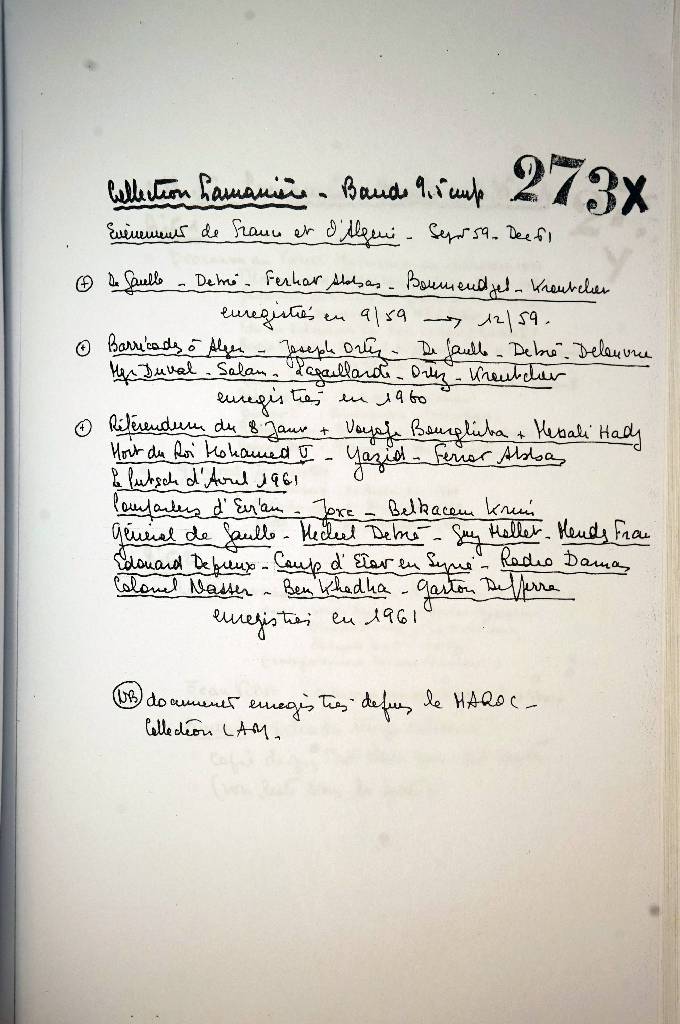 Collection Lamanière - Bande 9.5 cmps 273x
Evènements de France et d'Algerie - Sept 59 - Dec 61
+ De Gaulle - Debré - Ferhat Abbas - Boumendjel - Kreutcher
enregistrés en 9/59 → 12/59.
+ Barricades à Alger - Joseph Ortiz - De Gaulle - Debré - Delouvrie
Mgr Duval - Salan - Lagaillarde - Ortiz - Kreutcher
enregistrés en 1960
+ Référendum du 8 Janv + Voyage Bourghiba + Messali Hadj
Mort du Roi Mohamed V - Yazid - Ferhat Abbas
Le Putsch d'Avril 1961
Pourparlers d'Evian - Joxe - Belkacem Krim
Général de Gaulle - Michel Debré - Guy Mollet - Mendes Fran
Edouard Depreux - Coup d'Etat en Syrie - Radio Damas
Colonel Nasser - Ben Khedha - Gaston Defferre
enregistrés en 1961
NB documents enregistrés depuis le MAROC -
Collection LAM.